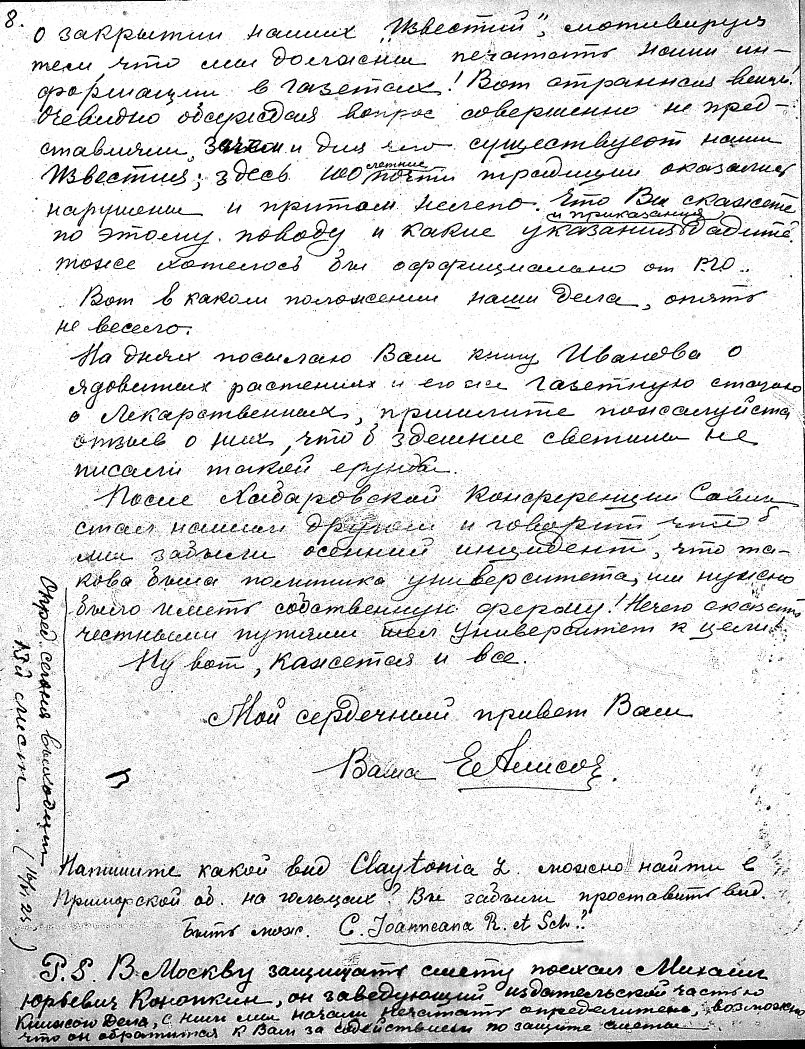 8.
о закрытии наших „Известий“, мотивируя
тем что мы должны печатать наши ин-
формации в газетах! Вот странная вещь!
Очевидно обсуждая вопрос совершенно не пред-
ставляли, зачем и для чего существуют наши
Известия; здесь 100 летние почти традиции оказались
нарушены и притом нелепо. Что Вы скажете
по этому поводу и какие указания и приказания дадите.
тоже хотелось бы оффициально от Р.Г.О..
Вот в каком положении наши дела, опять
не весело.
На днях посылаю Вам книгу Иванова о
ядовитых растениях и его же газетную статью
о лекарственных, пришлите пожалуйста
отзыв о них, что б здешние светила не
писали такой ерунды.
После Хабаровской Конференции Савич
стал нашим другом и говорит, что б
мы забыли осенний инцидент, что та-
кова была политика университета, им нужно
было иметь собственную ферму! Нечего сказать
честными путями шел Университет к цели!
Ну вот, кажется и все.
Мой сердечный привет Вам
Ваша ЕАлисова.
Опред. сегодня выходит
13й лист. (16/VI 25)
Напишите какой вид Claytonia L. можно найти в
Приморской об. на гольцах? Вы забыли проставить вид.
Быть мож. C. Joanneana R. et Sch.?
P.S. В Москву защищать смету поехал Михаил
Юрьевич Конопкин, он заведующий издательской частью
Книжного Дела, с ним мы начали печатать определитель, возможно
что он обратится к Вам за содействием по защите сметы